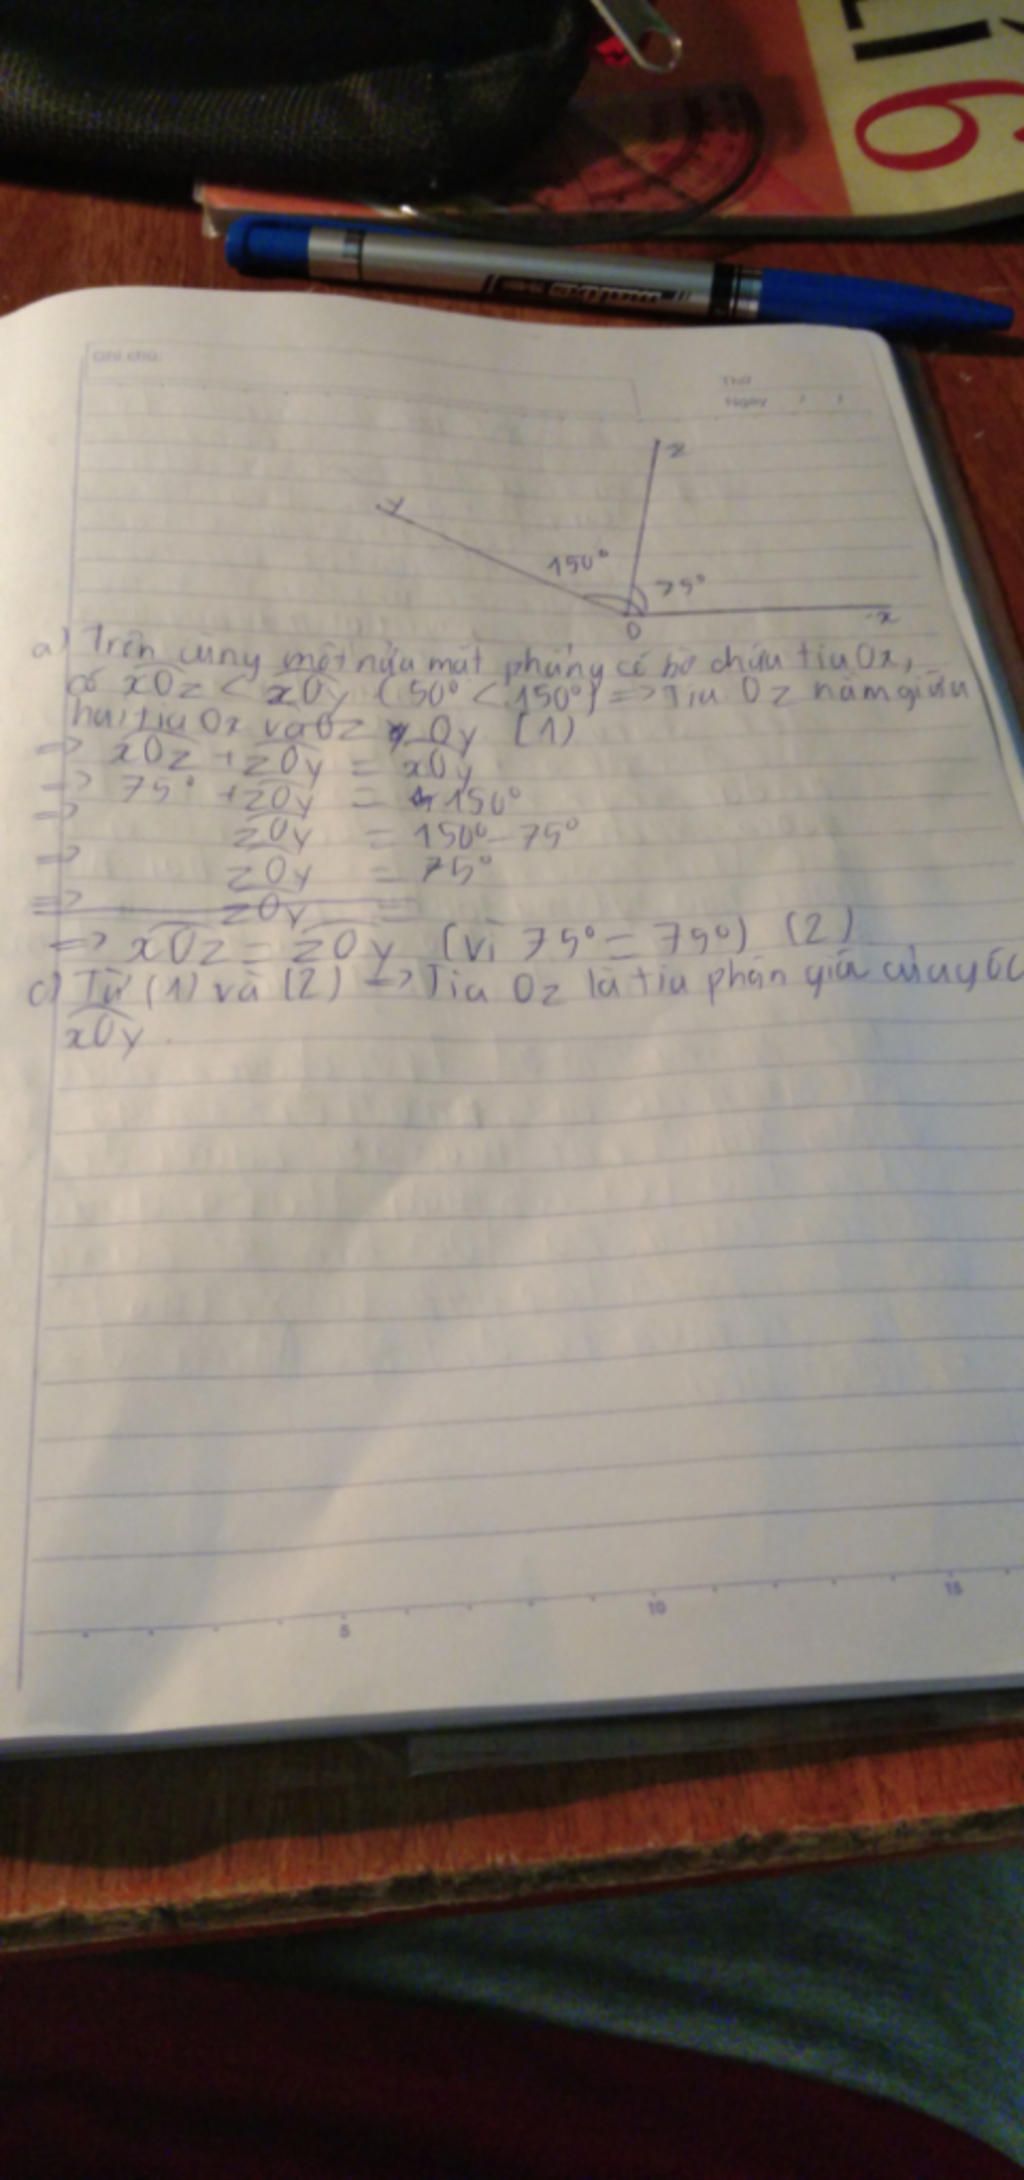 6
Ghi chú:
Thứ
Ngày / /
z
y
150°
75°
O
x
a) Trên cùng một nửa mặt phẳng có bờ chứa tia Ox,
có xOz < xOy (50° < 150°) => Tia Oz nằm giữa
hai tia Ox và Oy (1)
=> xOz + zOy = xOy
=> 75° + zOy = 150°
=> zOy = 150° - 75°
=> zOy = 75°
=> zOy =
=> xOz = zOy (vì 75° = 75°) (2)
c) Từ (1) và (2) => Tia Oz là tia phân giá của góc
xOy
5 10 15